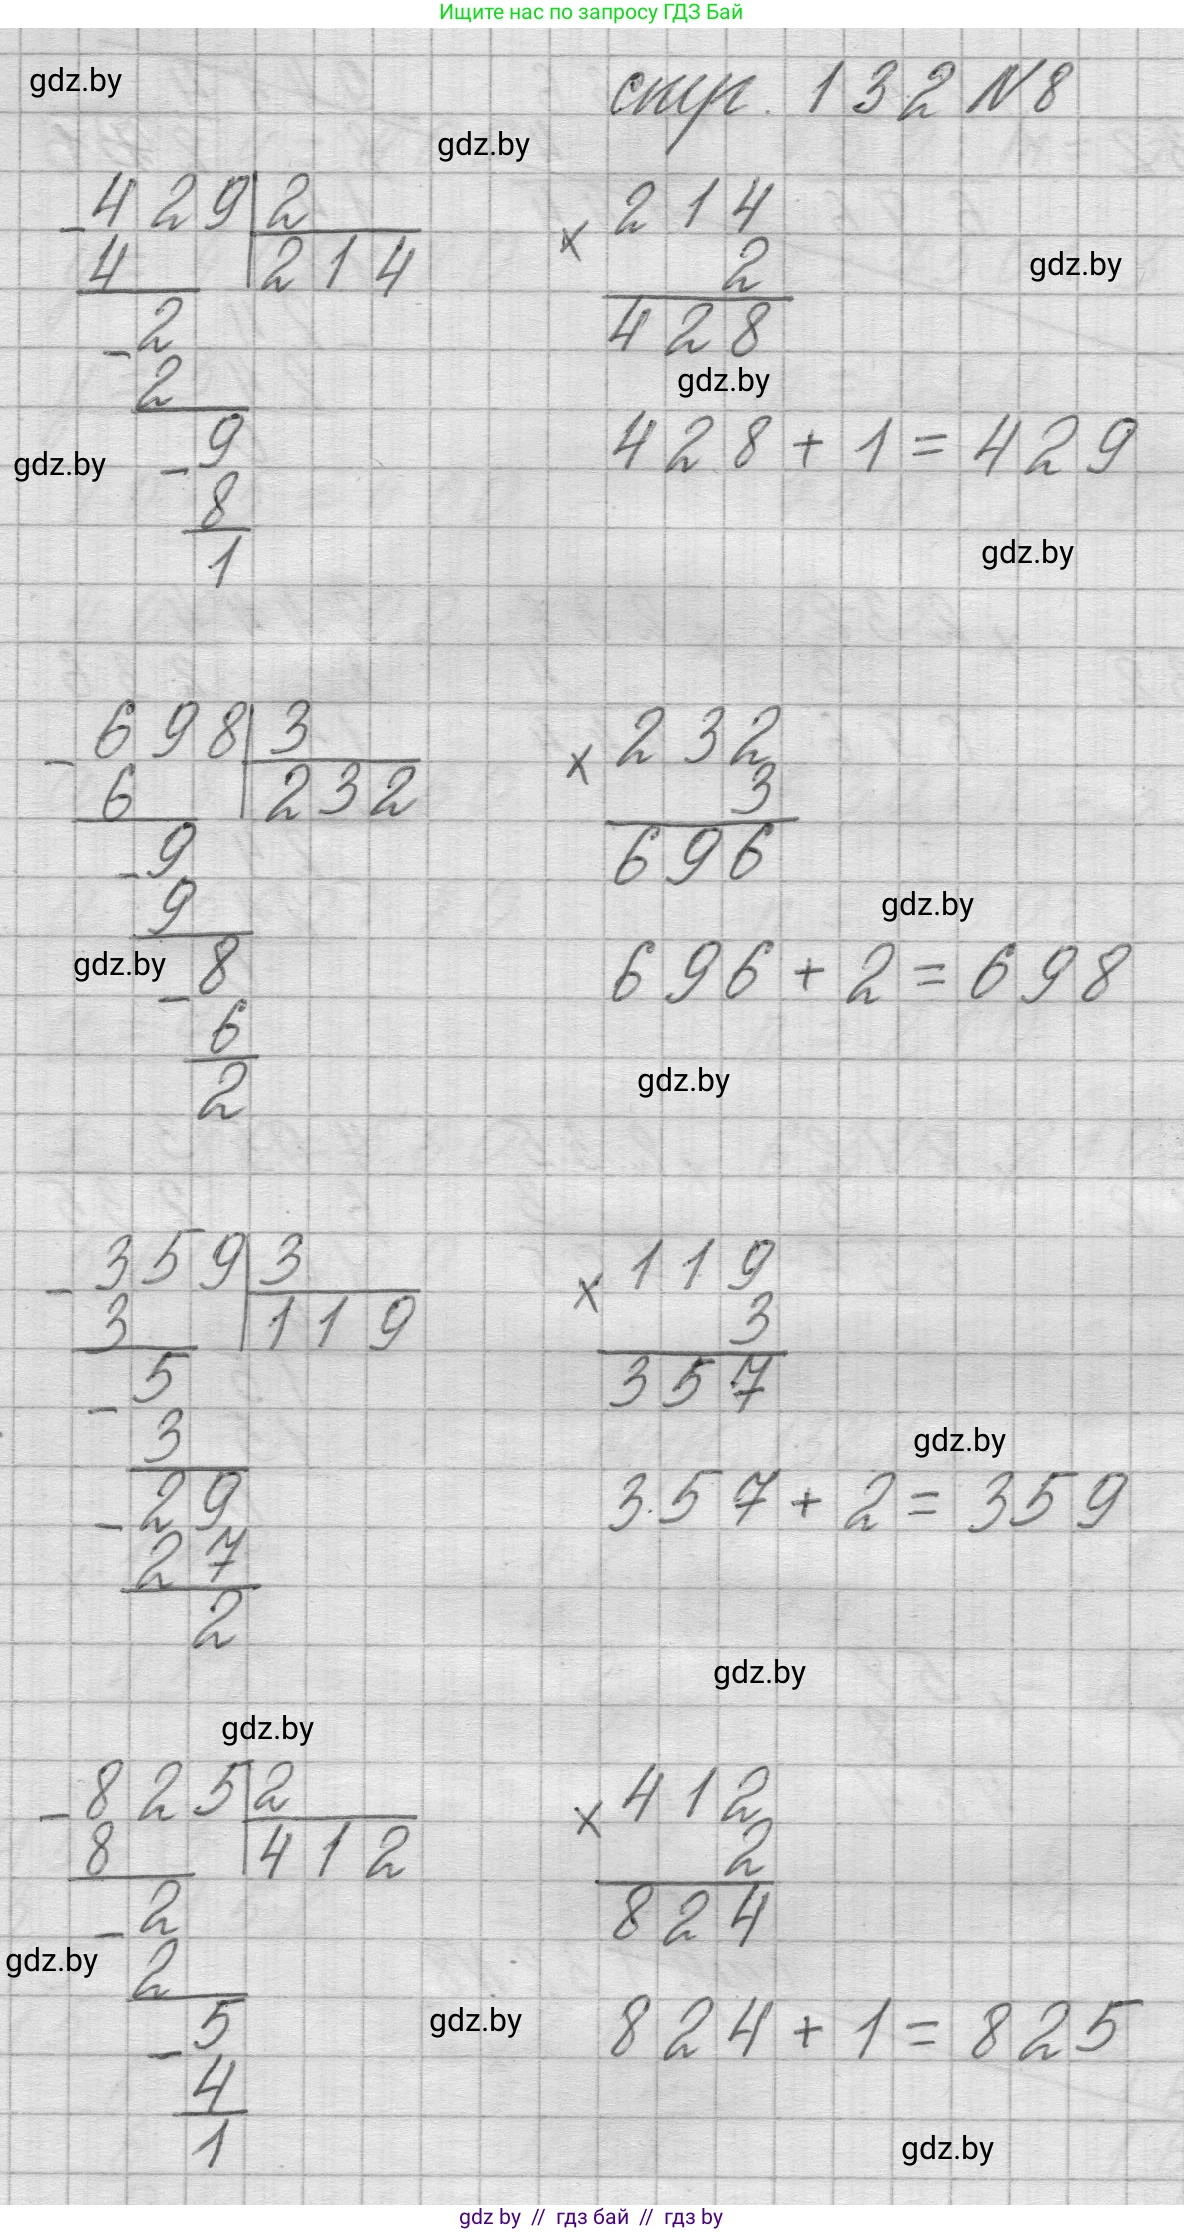 Ищите нас по запросу ГДЗ Бай
gdz.by
стр. 132 №8
gdz.by
- 429|2
4 |214
- 2
2
- 9
8
1
× 214
2
428
gdz.by
gdz.by
428 + 1 = 429
gdz.by
gdz.by
- 698|3
6 |232
- 9
9
- 8
6
2
× 232
3
696
gdz.by
696 + 2 = 698
gdz.by
gdz.by
- 359|3
3 |119
- 5
3
- 29
27
2
× 119
3
357
gdz.by
357 + 2 = 359
gdz.by
gdz.by
- 825|2
8 |412
- 2
2
- 5
4
1
× 412
2
824
gdz.by
gdz.by
824 + 1 = 825
gdz.by
gdz.by // гдз бай // гдз by